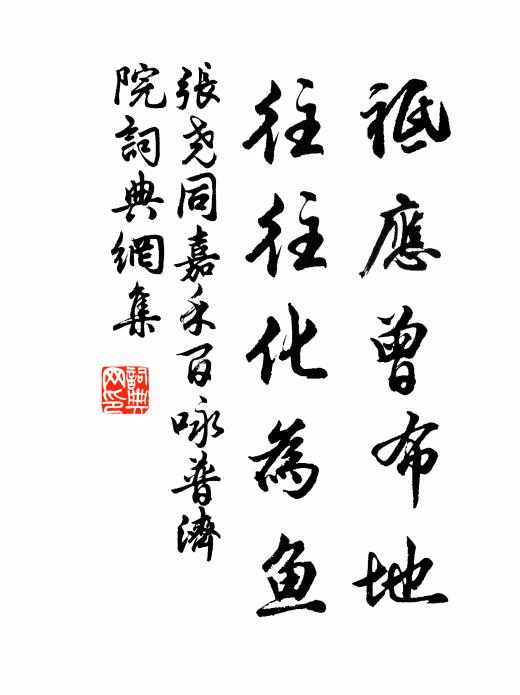 祗應曾布地
往往化為魚
張尧同嘉禾百咏普濟
院詞典網集
詞典
网印